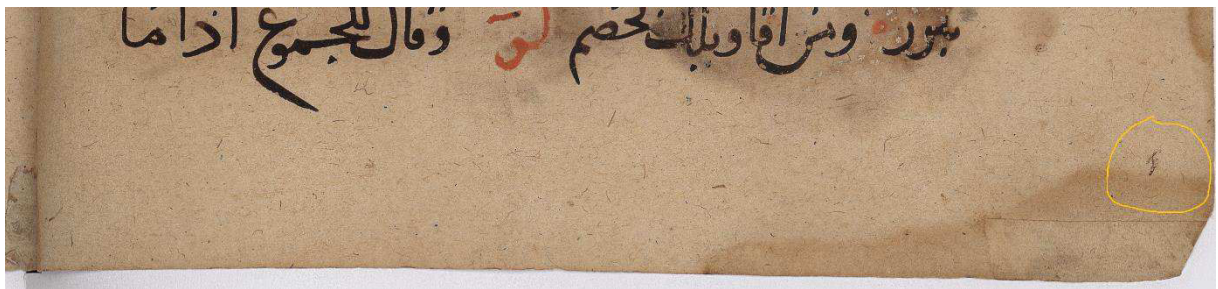 ومن اقاويلك لخصم لو وقال للجموع اذا ما